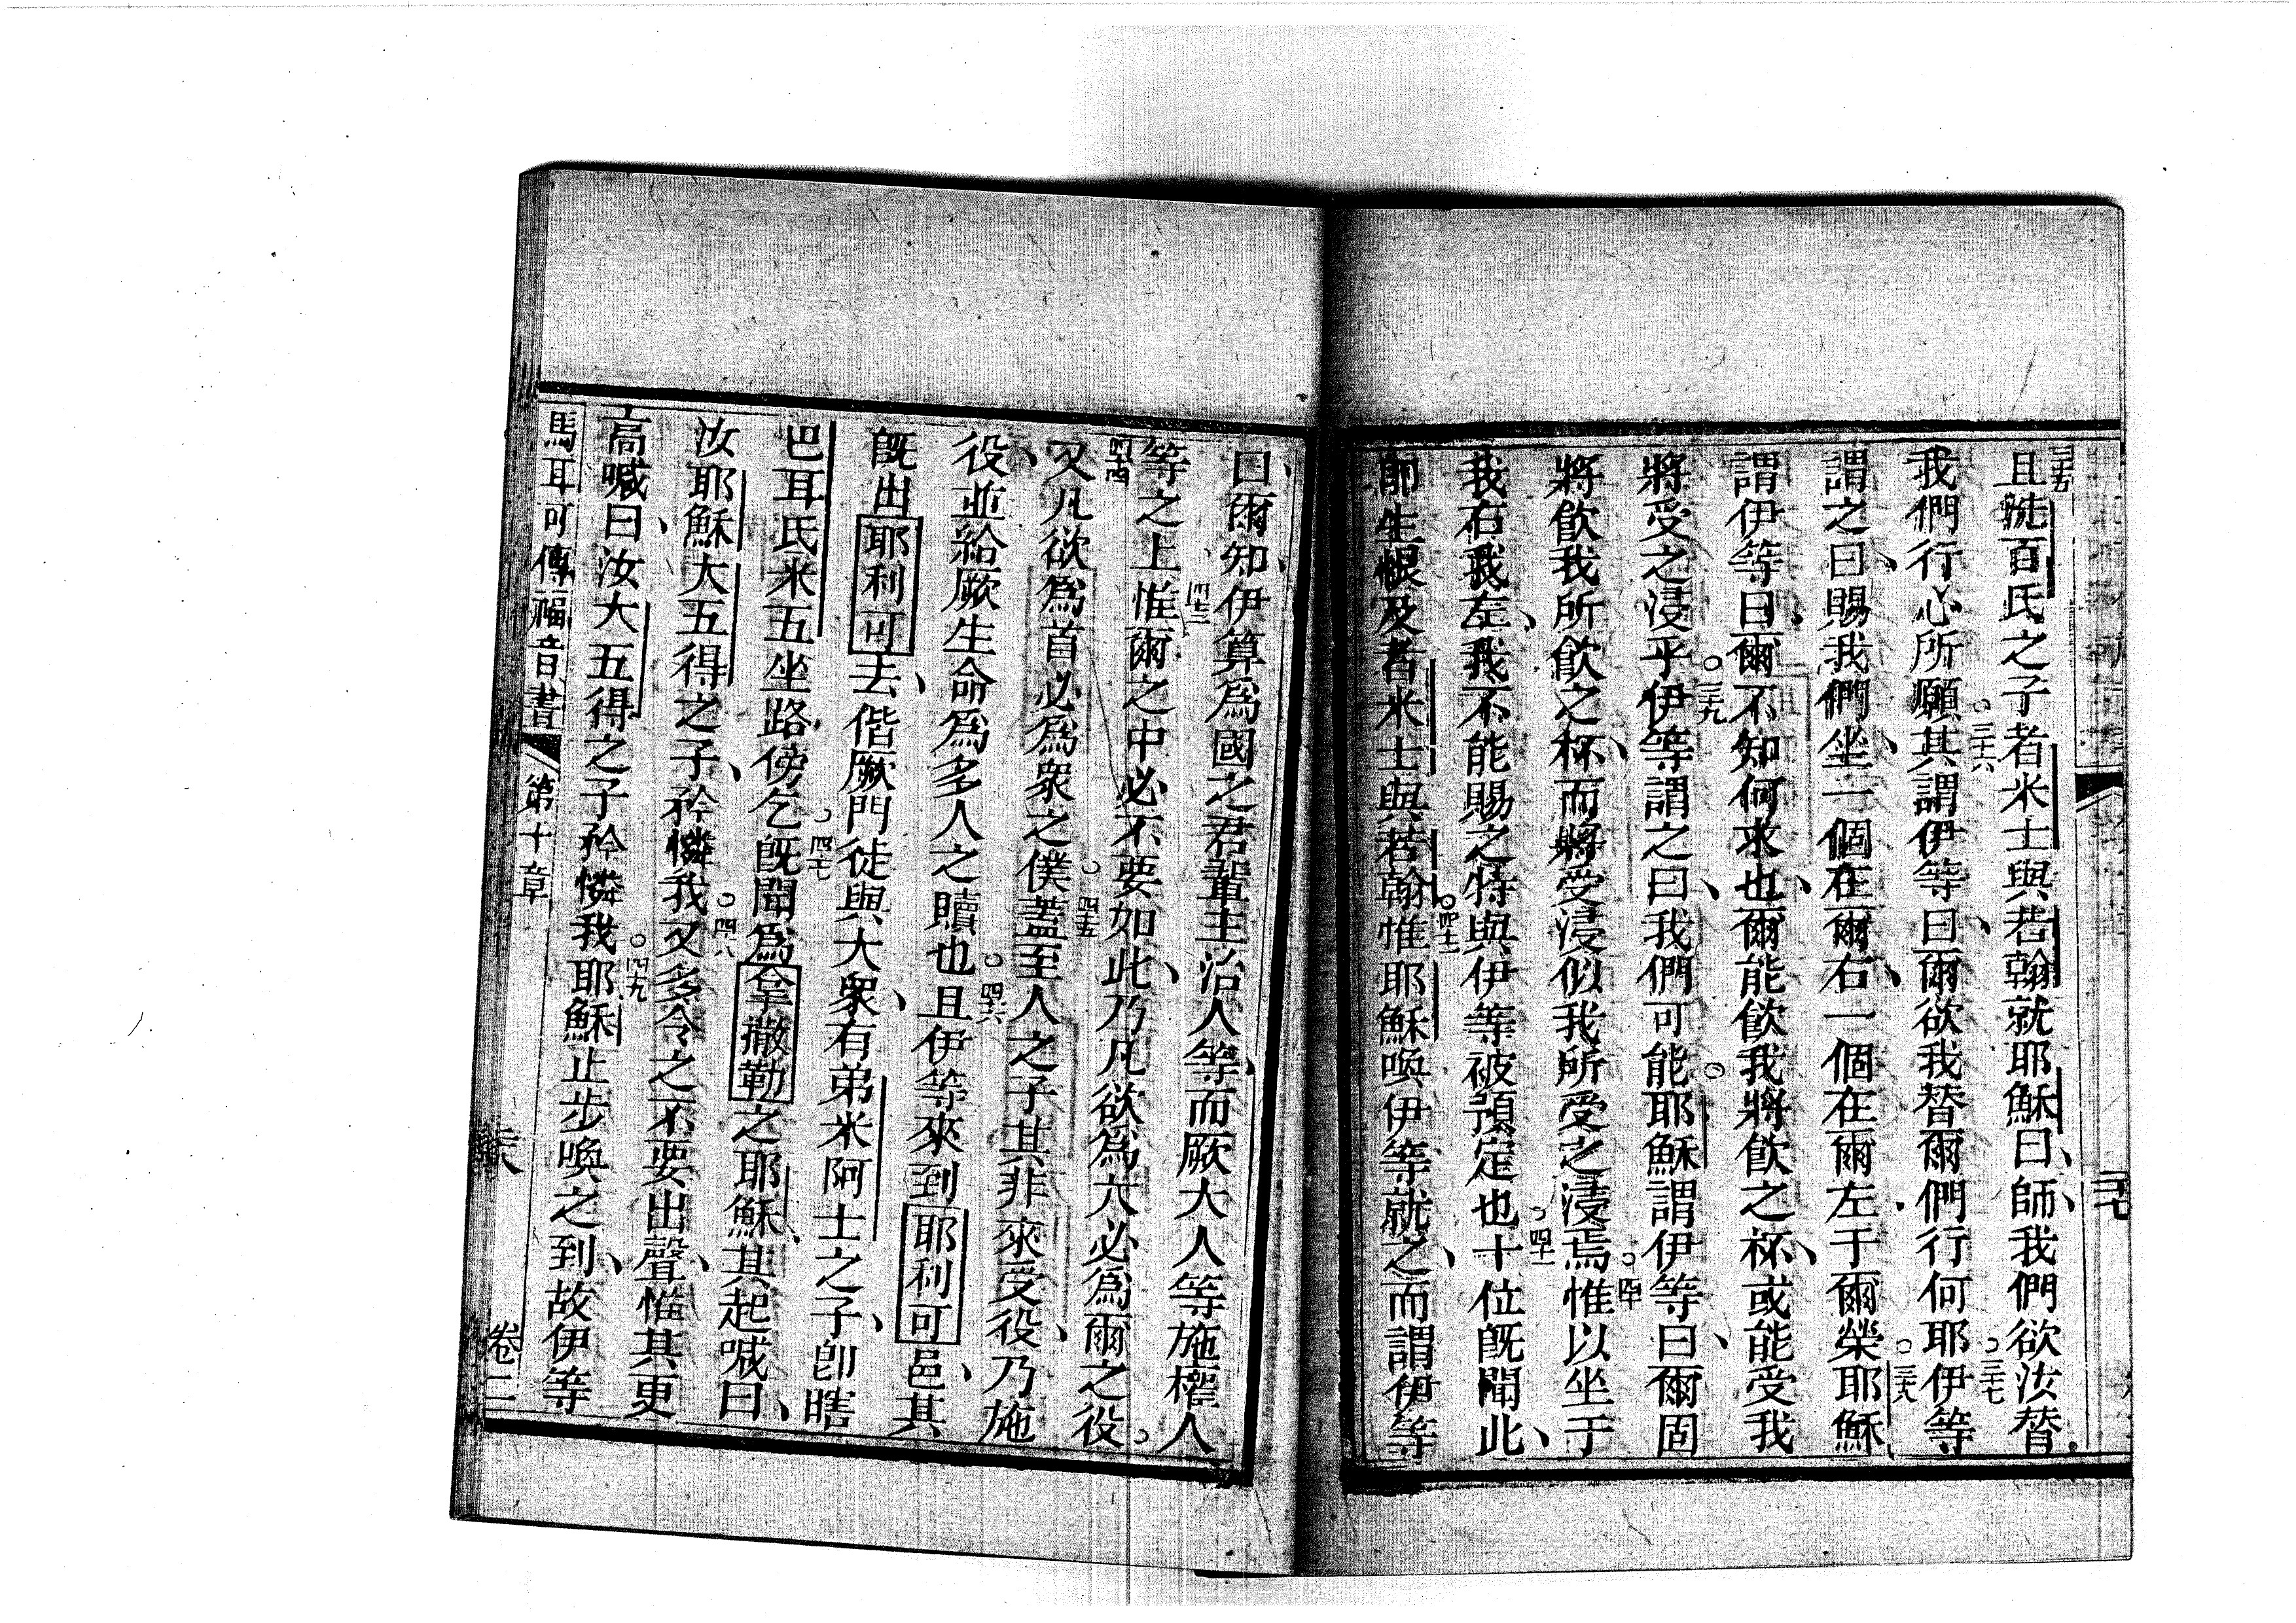 三十五且㧌百氏之子者米士與若翰就耶穌曰、師、我們欲汝替
我們行心所願。三十六其謂伊等曰、爾欲我替爾們行何耶。三十七伊等
謂之曰、賜我們坐、一個在爾右、一個在爾左于爾榮。三十八耶穌
謂伊等曰、爾不知何求也、爾能飲我將飲之杯、或能受我
將受之浸乎。三十九伊等謂之曰、我們可能。耶穌謂伊等曰、爾固
將飲我所飲之杯、而將受浸似我所受之浸焉。四十惟以坐于
我右我左、我不能賜之特與伊等被預定也。四十一十位既聞此、
即生恨及者米士與若翰。四十二惟耶穌喚伊等就之、而謂伊等
曰、爾知、伊算為國之君輩主治人等、而厥大人等施權人
等之上、四十三惟爾之中必不要如此、乃凡欲為大必為爾之役。
四十四又凡欲為首必為眾之僕。四十五蓋至人之子其非來受役、乃施
役、並給厥生命為多人之贖也。四十六且伊等來到耶利可邑、其
既出耶利可去、偕厥門徒與大眾、有弟米阿士之子、即瞎
巴耳氏米五坐路傍乞。四十七既聞為拿撒勒之耶穌、其起喊曰、
汝耶穌大五得之子、矜憐我。四十八又多令之不要出聲、惟其更
高喊曰、汝大五得之子矜憐我。四十九耶穌止步喚之到、故伊等
馬耳可傳福音書 第十章 卷二